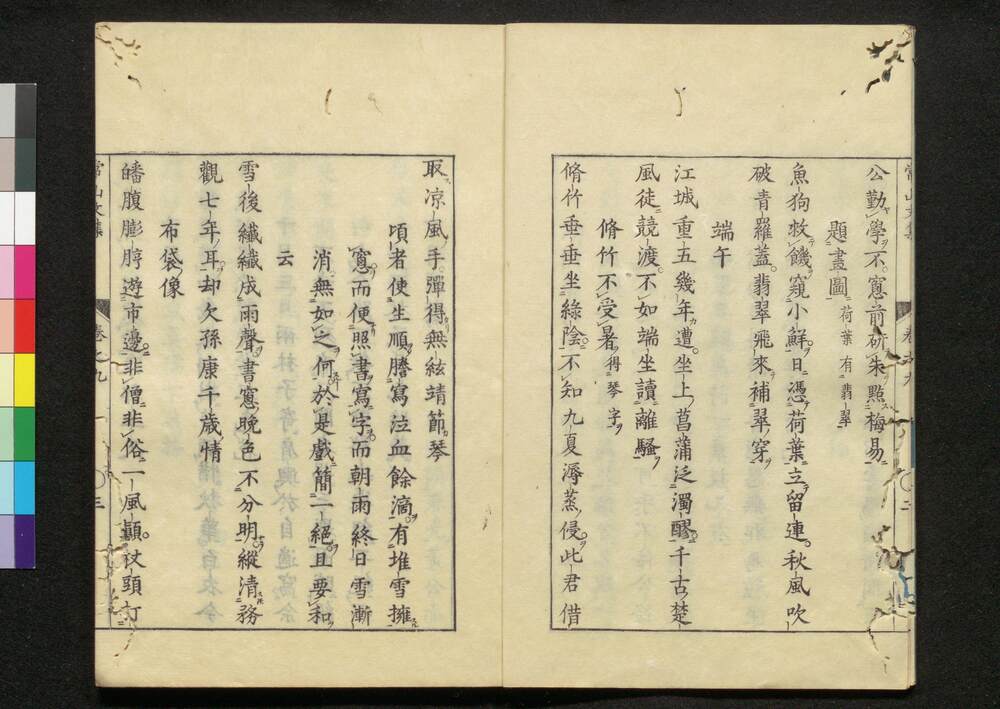 公勤學不窻前研朱點梅易
題畫圖 荷葉有翡翠
魚狗救饑窺小鮮日憑荷葉立留連秋風吹
破青羅蓋翡翠飛來補翠穿
端午
江城重五幾年遭坐上菖蒲泛濁醪千古楚
風徒競渡不如端坐讀離騷
脩竹不受暑 得琴字
脩竹垂垂坐綠陰不知九夏溽蒸侵此君借
取凉風手彈得無絃靖節琴
頃者使生順謄寫泣血餘滴有堆雪擁
窻而使照書寫字而朝雨終日雪漸
消無如之何於是戲簡一絕且要和
云
雪後纎纎成雨聲書窻晚色不分明縱清務
觀七年耳却欠孫康千歲情
布袋像
皤腹膨脝遊市邊非僧非俗一風顚杖頭打
常山文集 卷之九 三